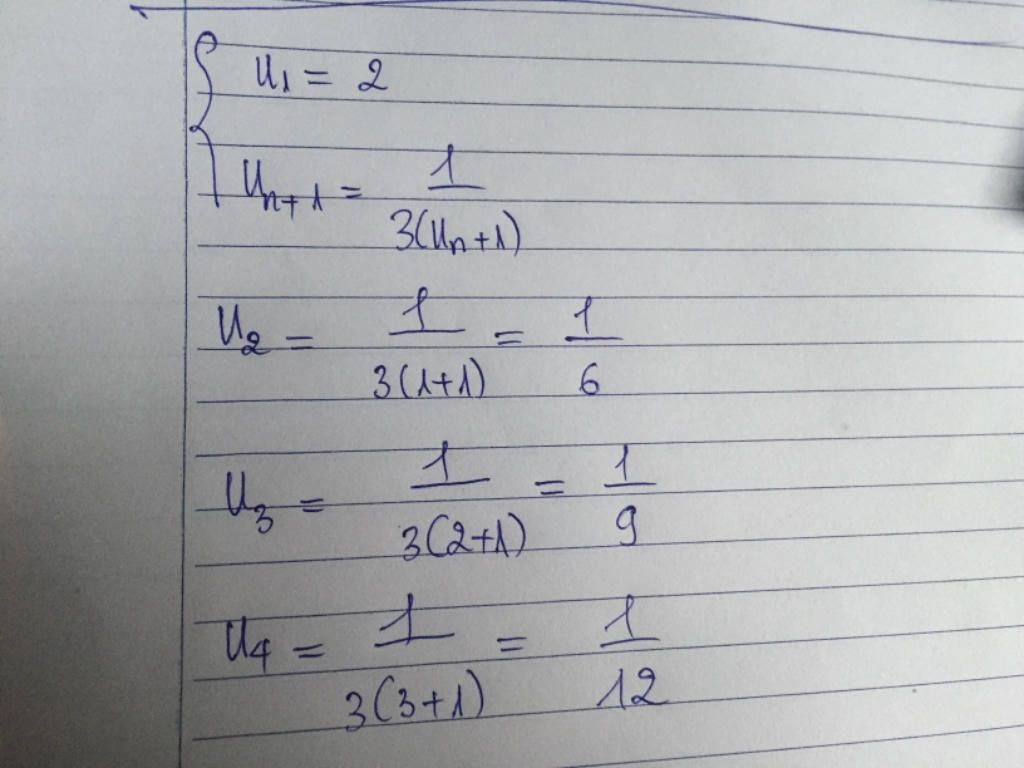 u₁ = 2
uₙ₊₁ = 1/3(uₙ+1)
u₂ = 1/3(1+1) = 1/6
u₃ = 1/3(2+1) = 1/9
u₄ = 1/3(3+1) = 1/12